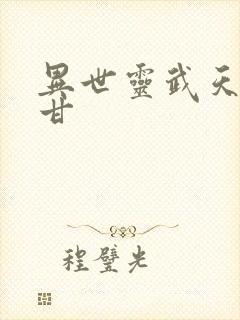 異世靈武天
甘
程璧光